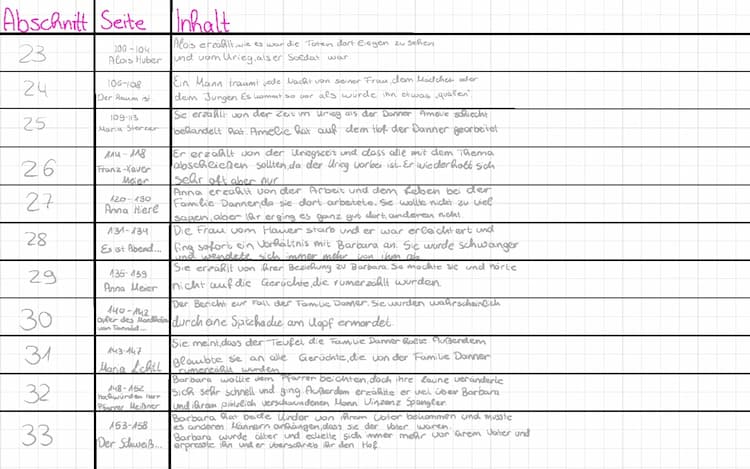 Abschnitt Seite Inhalt
23 100-104 Alois Huber
Alois erzählt, wie es war die Toten dort liegen zu sehen
und vom Krieg, als er Soldat war
24 106-108 Der Mann ist
Ein Mann träumt jede Nacht von seiner Frau, dem Mädchen oder
dem Jungen Es kommt so vor als würde ihn etwas „quälen".
25 109-113 Maria Sterzer
Sie erzählt von der Zeit im Krieg als der Danner Amelie schlecht
behandelt hat. Amelie hat auf dem Hof der Danner gearbeitet
26 114-118 Franz-Xaver Meier
Er erzählt von der Kriegszeit und dass alle mit dem Thema
abschließen sollten, da der Krieg vorbei ist. Er wiederholt sich
sehr oft aber nur
27 120-130 Anna Hierl
Anna erzählt von der Arbeit und dem Leben bei der
Familie Danner, da sie dort arbeitete. Sie wollte nicht zu viel
sagen, aber ihr erging es ganz gut dort, anderen nicht
28 131-134 Es ist Abend...
Die Frau vom Hauer starb und er war erleichtert und
fing sofort ein Verhältnis mit Barbara an. Sie wurde schwanger
und wendete sich immer mehr von ihm ab
29 135-139 Anna Meier
Sie erzählt von ihrer Beziehung zu Barbara. Sie mochte sie und hörte
nicht auf die Gerüchte, die rumerzählt wurden.
30 140-142 Opfer des Mordhofes von Tannöd...
Der Bericht zur Fall der Familie Danner. Sie wurden wahrscheinlich
durch eine Spitzhacke am Kopf ermordet.
31 143-147 Maria
Sie meint, dass der Teufel die Familie Danner holte. Außerdem
glaubte sie an alle Gerüchte, die von der Familie Danner
rumerzählt wurden
32 148-152 Hochwürden Herr Pfarrer Meißner
Barbara wollte dem Pfarrer beichten, doch ihre Laune veränderte
sich sehr schnell und ging. Außerdem erzählte er viel über Barbara
und ihrem plötzlich verschwundenen Mann Vinzenz Spangler
33 153-158 Der Schweiß...
Barbara hat beide Kinder von ihrem Vater bekommen und musste
es anderen Männern anhängen, dass sie der Vater waren.
Barbara wurde älter und ekelte sich immer mehr vor ihrem Vater und
erpresste ihn und er überschrieb ihr den Hof.